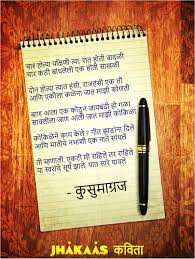 चार होत्या पक्षिणी त्या, रात होती वादळी
चार कंठी बांधलेली एक होती साखळी
दोन होत्या त्यात हंसी, राजहंसी एक ती
आणि एकीला कळेना जात माझी कोणती
बाण आला एक कोठून जायबंदी हो गळा
सावलीला जाण आली जात माझी कोकिळा
कोकिळेने काय केले ? गीत झाडांना दिले
आणि मातीचे नभाशी एक नाते सांधले
ती म्हणाली, एकटी मी राहिले तर राहिले
या स्वरांचे सूर्य झाले, यात सारे पावले
- कुसुमाग्रज
JHAKAAS कविता